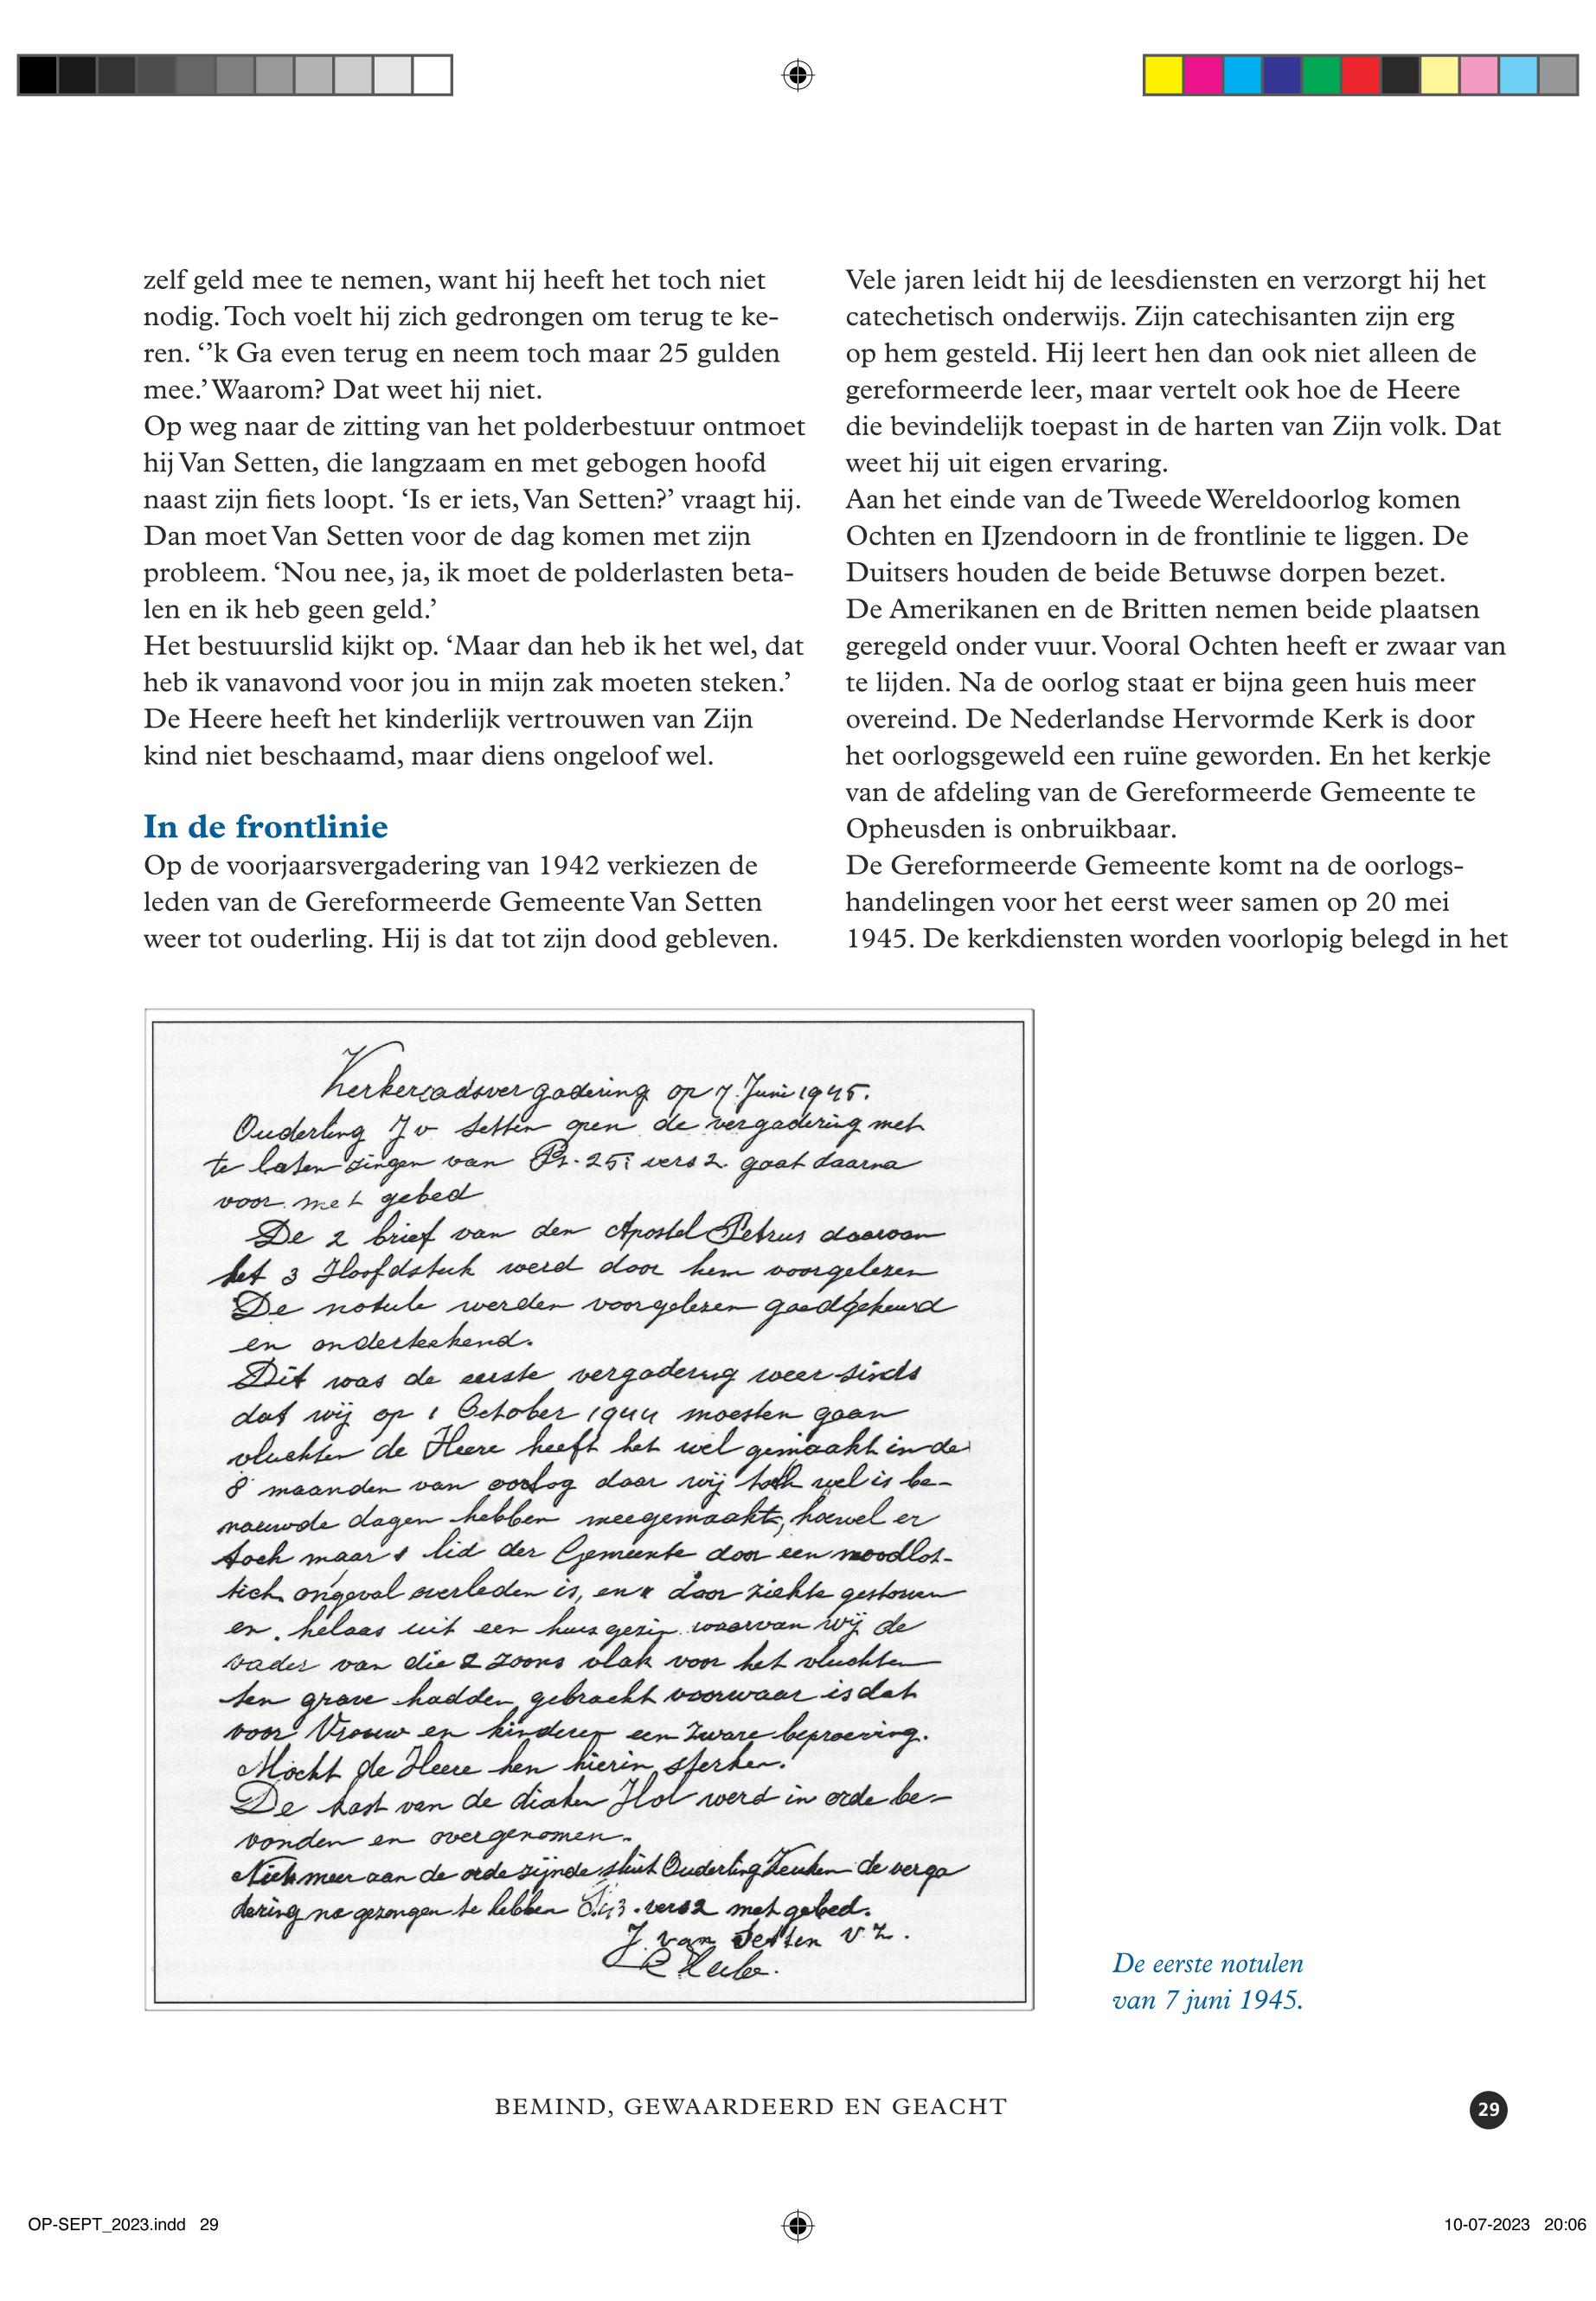 zelf geld mee te nemen, want hij heeft het toch niet
nodig. Toch voelt hij zich gedrongen om terug te ke-
ren. ‘’k Ga even terug en neem toch maar 25 gulden
mee.’ Waarom? Dat weet hij niet.
Op weg naar de zitting van het polderbestuur ontmoet
hij Van Setten, die langzaam en met gebogen hoofd
naast zijn fiets loopt. ‘Is er iets, Van Setten?’ vraagt hij.
Dan moet Van Setten voor de dag komen met zijn
probleem. ‘Nou nee, ja, ik moet de polderlasten beta-
len en ik heb geen geld.’
Het bestuurslid kijkt op. ‘Maar dan heb ik het wel, dat
heb ik vanavond voor jou in mijn zak moeten steken.’
De Heere heeft het kinderlijk vertrouwen van Zijn
kind niet beschaamd, maar diens ongeloof wel.
In de frontlinie
Op de voorjaarsvergadering van 1942 verkiezen de
leden van de Gereformeerde Gemeente Van Setten
weer tot ouderling. Hij is dat tot zijn dood gebleven.
Vele jaren leidt hij de leesdiensten en verzorgt hij het
catechetisch onderwijs. Zijn catechisanten zijn erg
op hem gesteld. Hij leert hen dan ook niet alleen de
gereformeerde leer, maar vertelt ook hoe de Heere
die bevindelijk toepast in de harten van Zijn volk. Dat
weet hij uit eigen ervaring.
Aan het einde van de Tweede Wereldoorlog komen
Ochten en IJzendoorn in de frontlinie te liggen. De
Duitsers houden de beide Betuwse dorpen bezet.
De Amerikanen en de Britten nemen beide plaatsen
geregeld onder vuur. Vooral Ochten heeft er zwaar van
te lijden. Na de oorlog staat er bijna geen huis meer
overeind. De Nederlandse Hervormde Kerk is door
het oorlogsgeweld een ruïne geworden. En het kerkje
van de afdeling van de Gereformeerde Gemeente te
Opheusden is onbruikbaar.
De Gereformeerde Gemeente komt na de oorlogs-
handelingen voor het eerst weer samen op 20 mei
1945. De kerkdiensten worden voorlopig belegd in het
Kerkeraadsvergadering op 7 Juni 1945.
Ouderling J v Setten open de vergadering met
te laten zingen van Ps. 25: vers 2. gaat daarna
voor met gebed
De 2 brief van den Apostel Petrus daarvan
het 3 Hoofdstuk werd door hem voorgelezen
De notule werden voorgelezen goedgekeurd
en onderteekend.
Dit was de eerste vergadering weer sinds
dat wij op 1 October 1944 moesten gaan
vluchten de Heere heeft het wel gemaakt in de
8 maanden van oorlog daar wij toch wel is be-
nauwde dagen hebben meegemaakt, hoewel er
toch maar 1 lid der Gemeente door een noodlot-
tich ongeval overleden is, en 1 door ziekte gestorven
en helaas uit een huisgezin waarvan wij de
vader van die 2 zoons vlak voor het vluchten
ten grave hadden gebracht voorwaar is dat
voor Vrouw en kinderen een zware beproeving.
Mocht de Heere hen hierin sterken!
De kast van de diaken Hol werd in orde be-
vonden en overgenomen.
Niets meer aan de orde zijnde sluit Ouderling Keuken de verga
dering na gezongen te hebben vers 2 met gebed.
J. van Setten V.Z.
De eerste notulen
van 7 juni 1945.
BEMIND, GEWAARDEERD EN GEACHT
29
OP-SEPT_2023.indd 29
10-07-2023 20:06